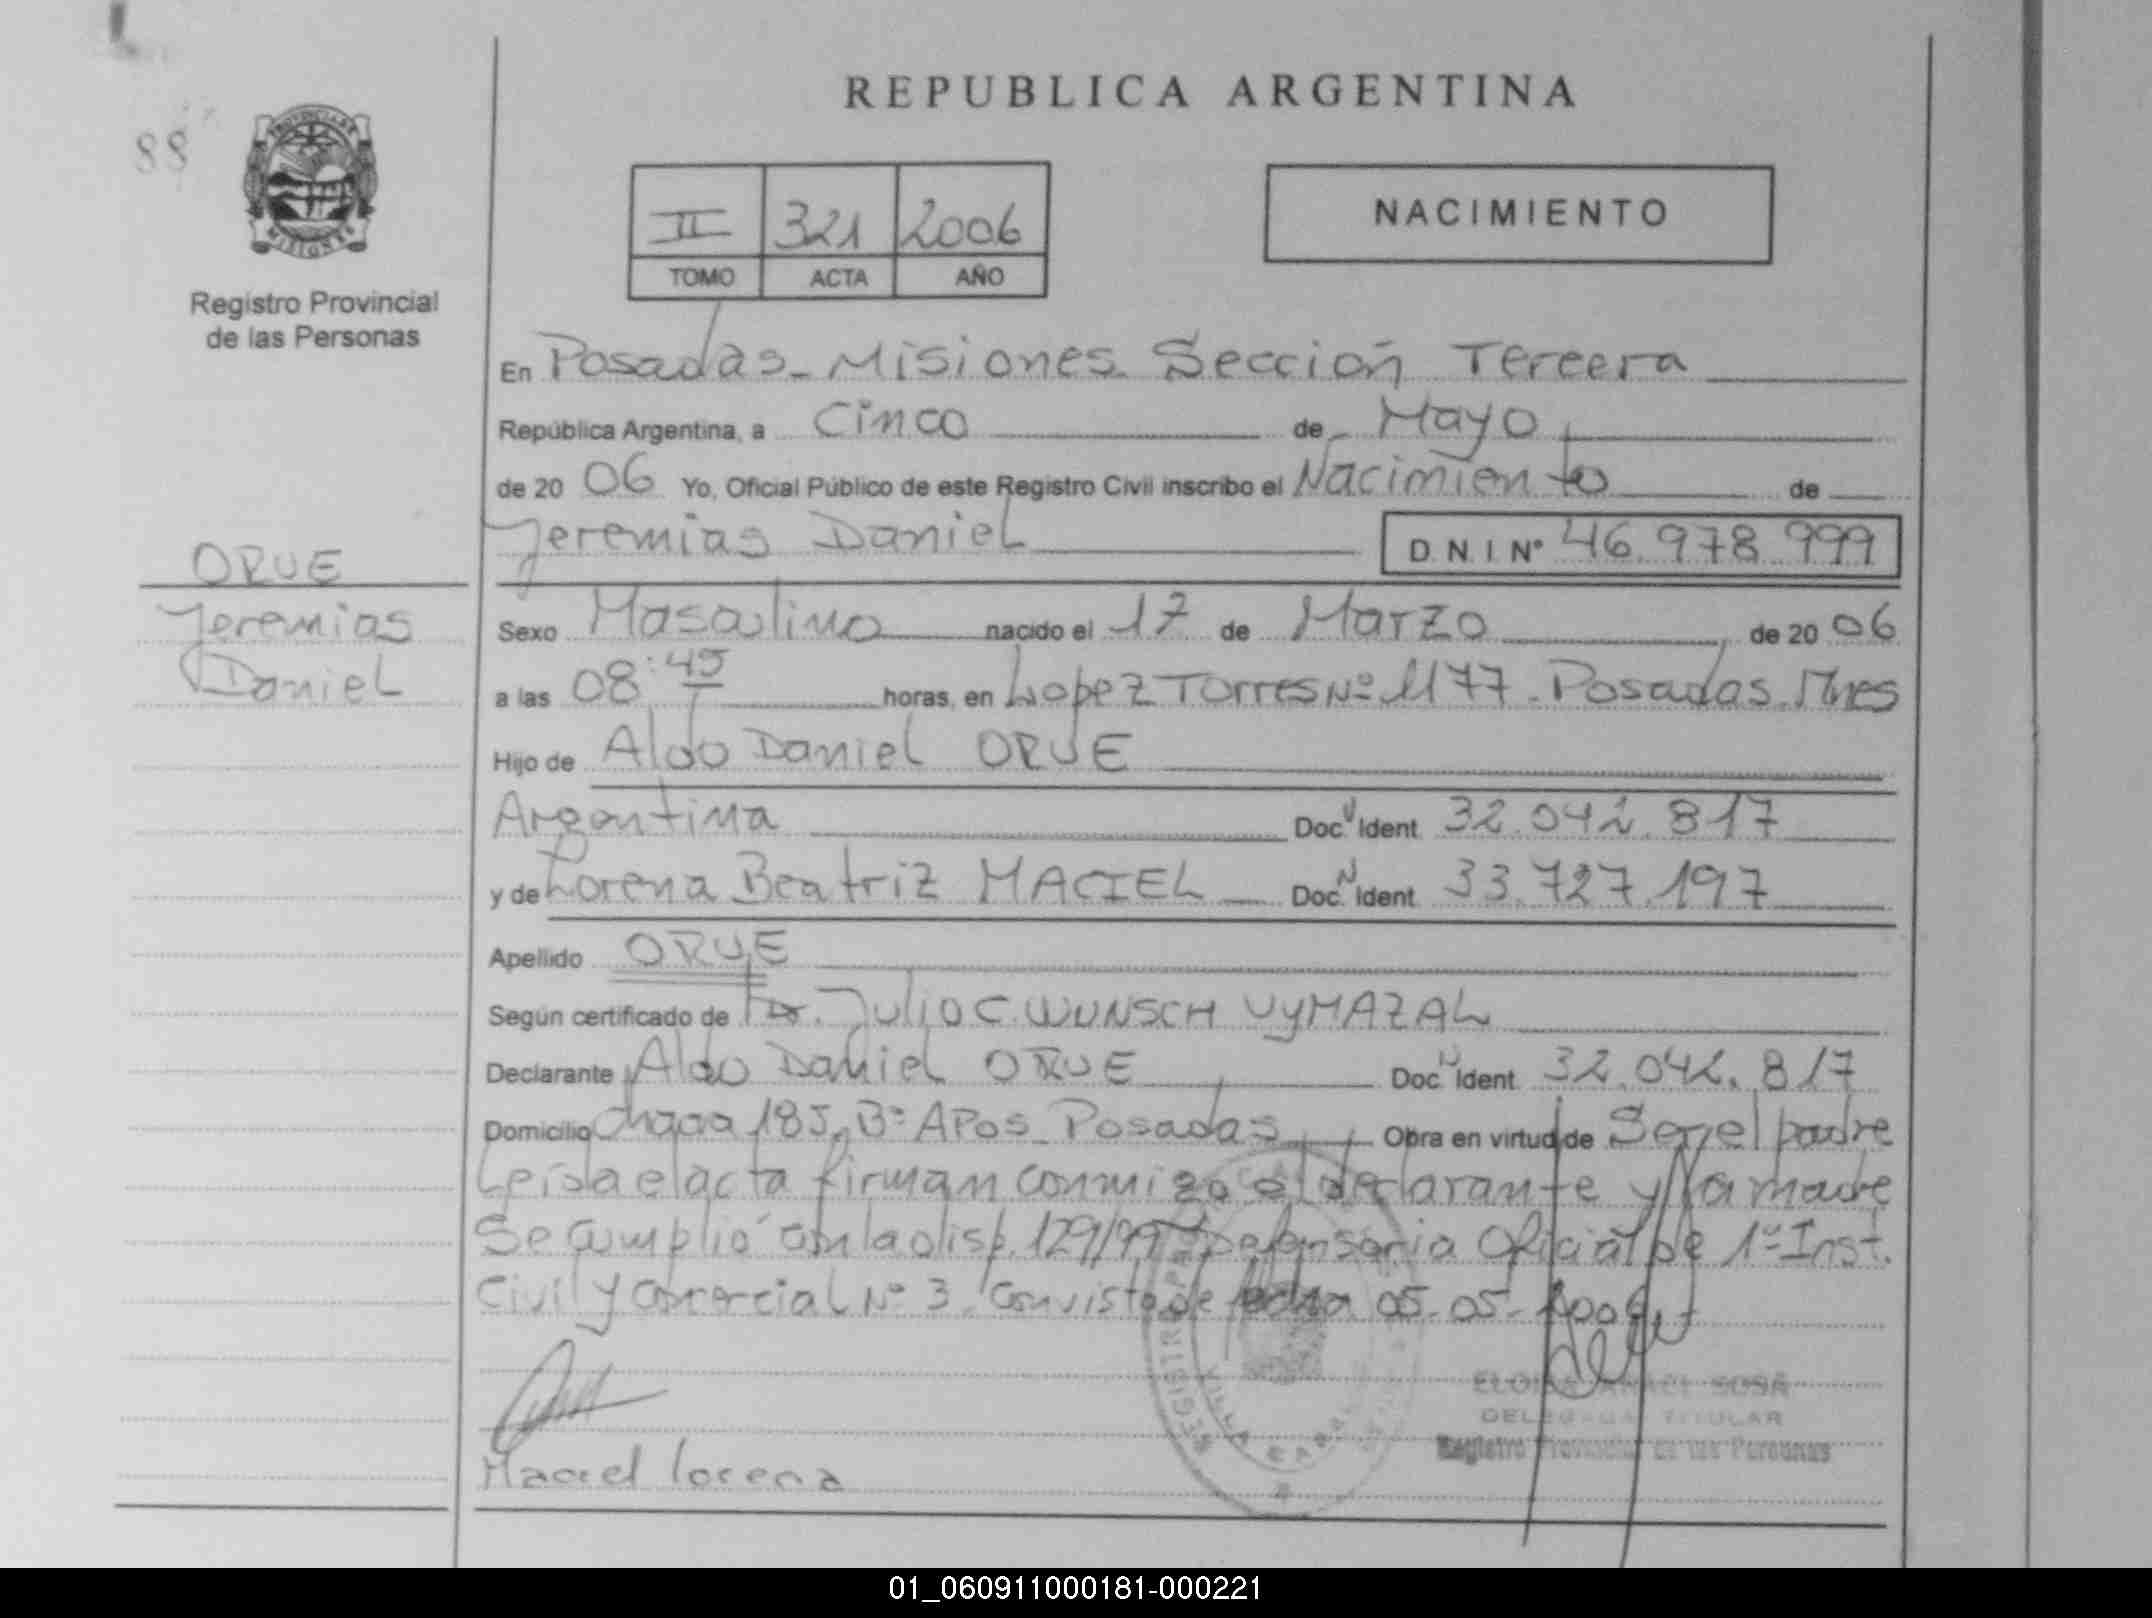 REPUBLICA ARGENTINA
88
PROVINCIA DE
MISIONES
Registro Provincial
de las Personas
II 321 2006
TOMO ACTA AÑO
NACIMIENTO
En Posadas - Misiones. Sección Tercera
República Argentina, a Cinco de Mayo
de 20 06 Yo, Oficial Público de este Registro Civil inscribo el Nacimiento de
Jeremias Daniel D.N.I. Nº 46.978.999
ORUE
Jeremias
Daniel
Sexo Masculino nacido el 17 de Marzo de 20 06
a las 08:45 horas, en Lopez Torres Nº 1177 - Posadas. Mnes
Hijo de Aldo Daniel ORUE
Argentina Doc. N Ident. 32.042.817
y de Lorena Beatriz MACIEL Doc. N Ident. 33.727.197
Apellido ORUE
Según certificado de Dr. Julio C. WUNSCH VYMAZAL
Declarante Aldo Daniel ORUE Doc. N Ident. 32.042.817
Domicilio Chacra 185, Bº APOS - Posadas Obra en virtud de Ser el padre
Leída el acta firman conmigo el declarante y la madre
Se cumplió con la disp. 129/99 Defensoria Oficial de 1º Inst.
Civil y Comercial Nº 3. Con vista de fecha 05-05-2006
REGISTRO
VILLA
DELEGADA TITULAR
Registro Provincial de las Personas
Maciel lorena
01_060911000181-000221